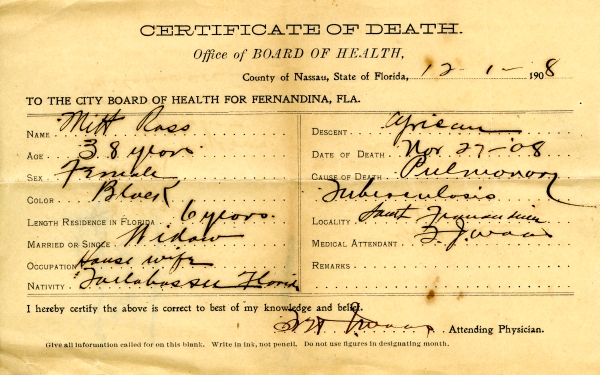 CERTIFICATE OF DEATH.
Office of BOARD OF HEALTH,
County of Nassau, State of Florida, 12-1- 1908
TO THE CITY BOARD OF HEALTH FOR FERNANDINA, FLA.
NAME Mitt Ross
AGE 38 years
SEX Female
COLOR Black
LENGTH RESIDENCE IN FLORIDA 6 years.
MARRIED OR SINGLE Widow
OCCUPATION House wife
NATIVITY Tallahassee Florida
DESCENT African
DATE OF DEATH Nov 27-08
CAUSE OF DEATH Pulmonary
Tuberculosis
LOCALITY Fernandina
MEDICAL ATTENDANT
REMARKS
I hereby certify the above is correct to best of my knowledge and belief.
Attending Physician.
Give all information called for on this blank. Write in ink, not pencil. Do not use figures in designating month.